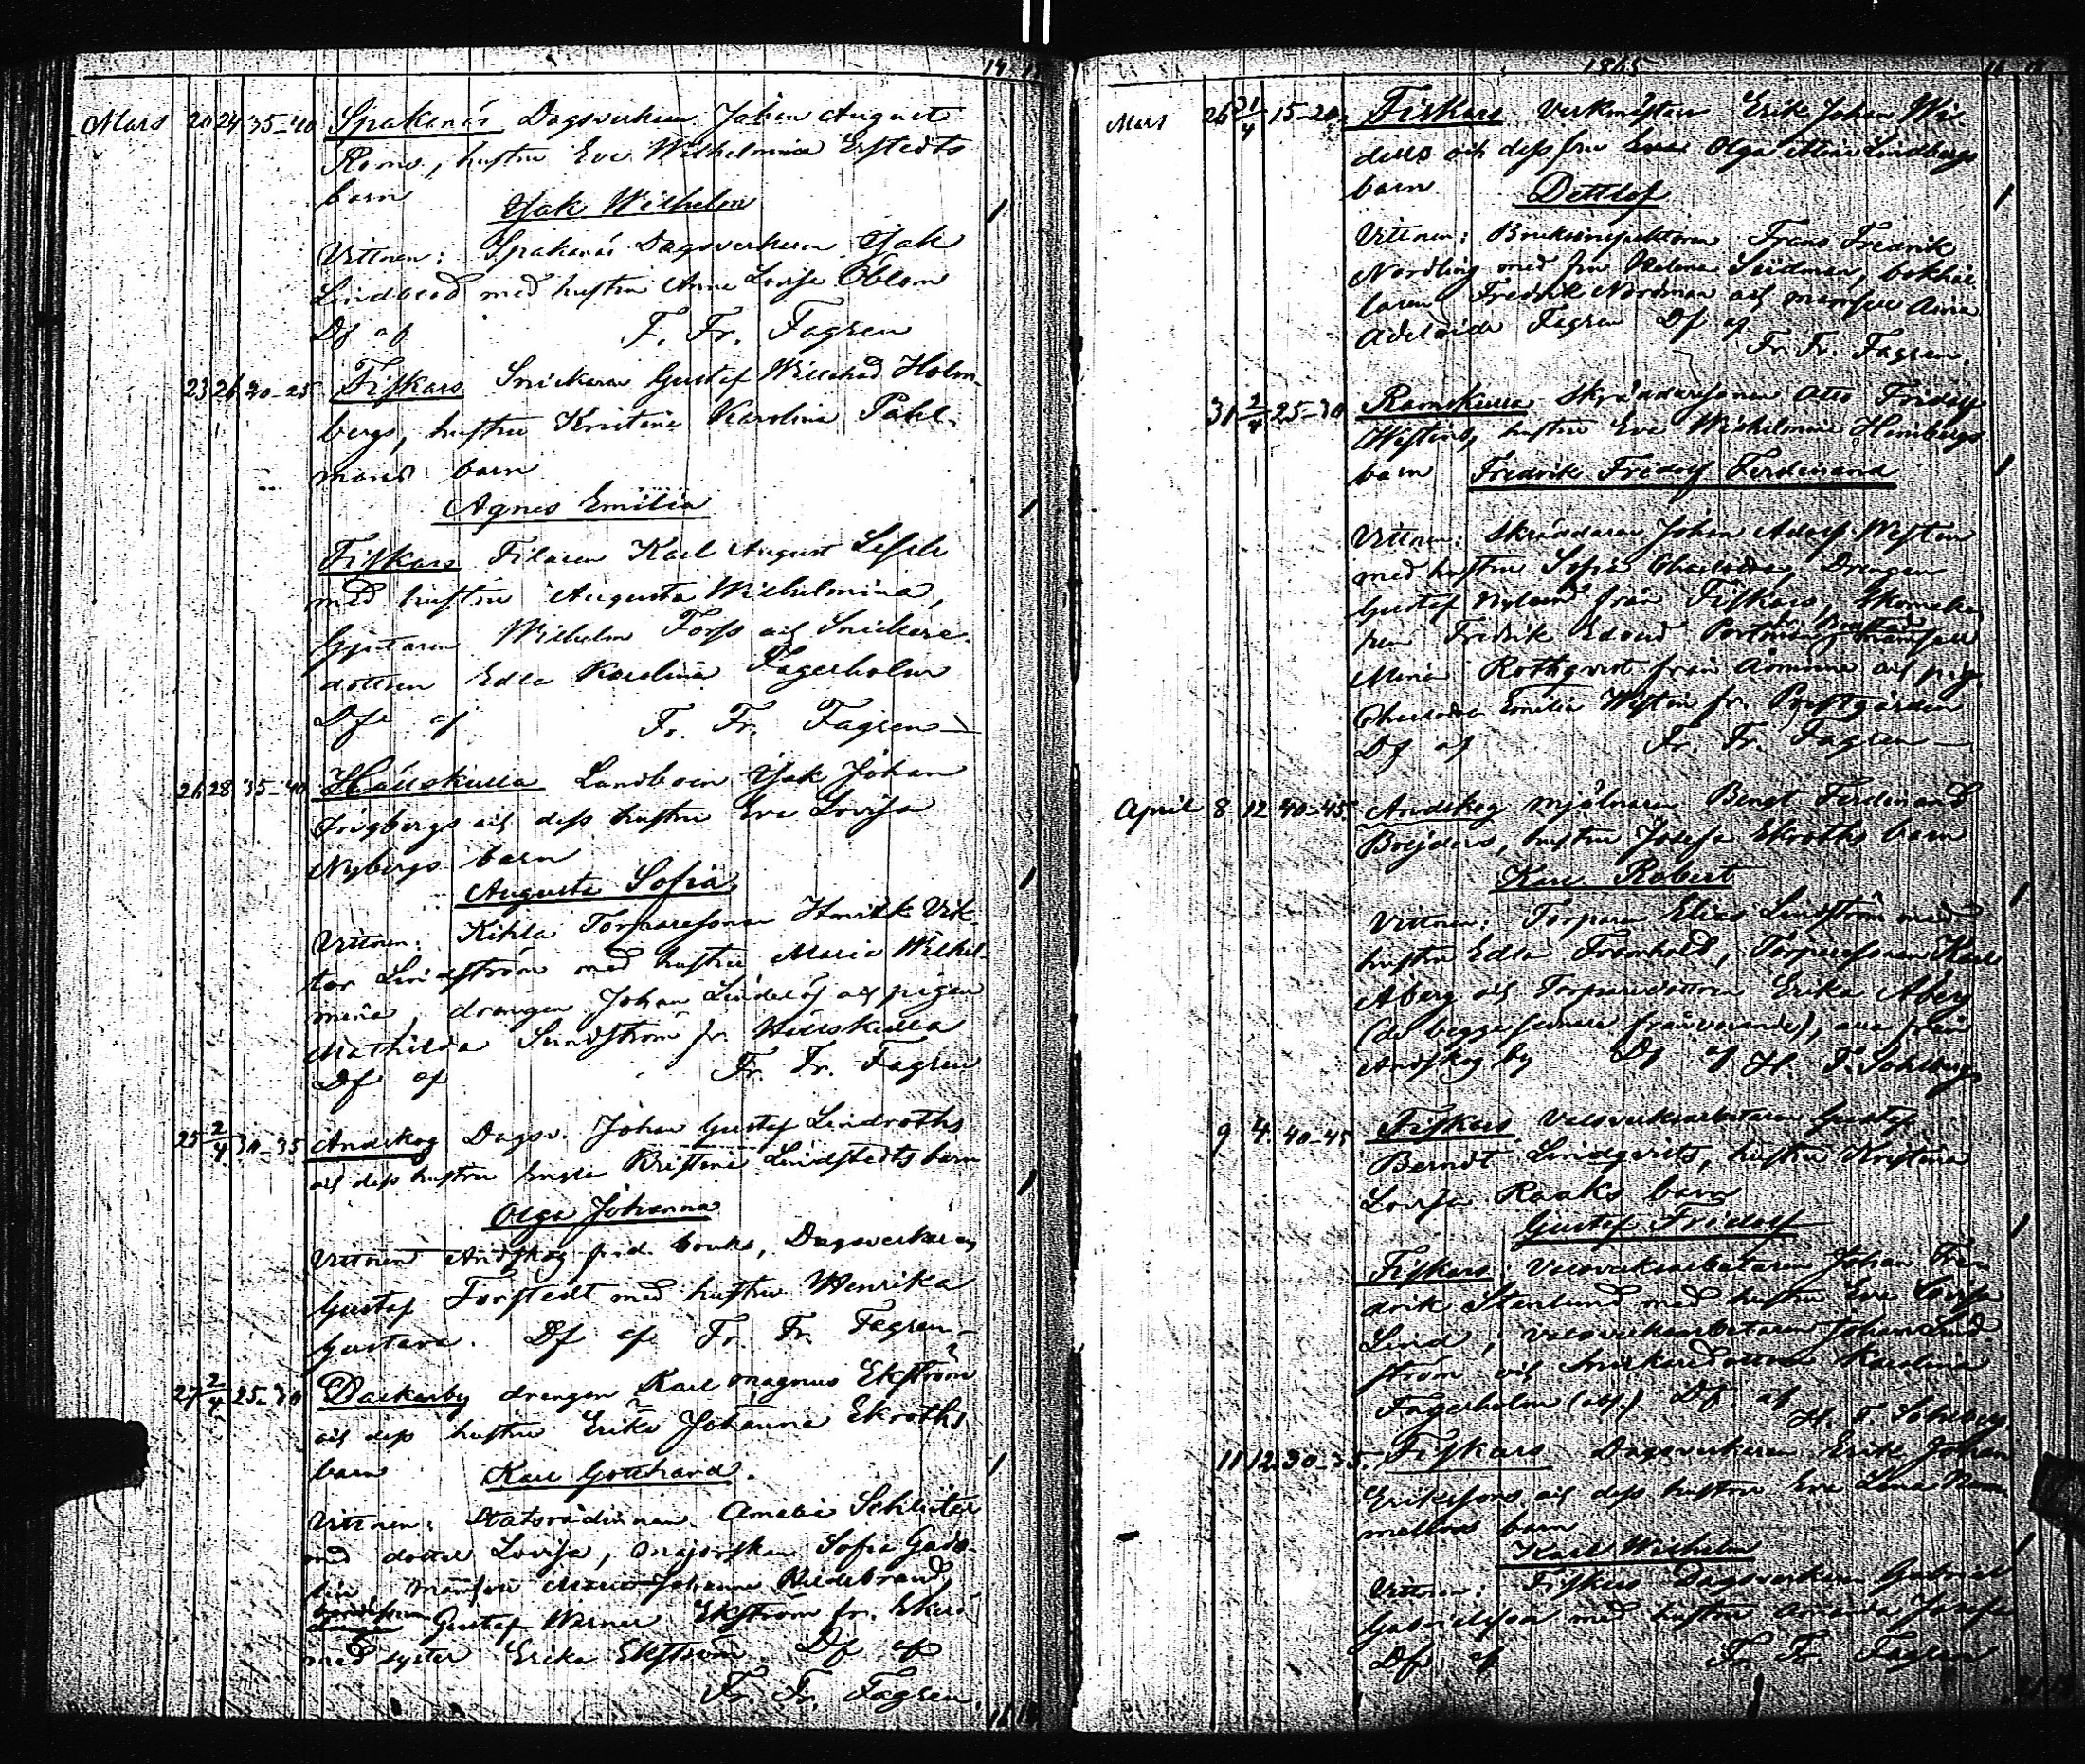 Mars 20 24 35-40 Spakanäs Dagsverkaren Johan August
Roms, hustru Eva Wilhelmina Erstedts
barn
Isak Wilhelm
Vittnen: Spakanäs Dagsverkaren Isak
Lindblad med hustru Anna Lovisa Öblom
Df af F. Fr. Fagren
23 26 20-25 Fiskars Snickaren Gustaf Willehad Holm-
bergs, hustru Kristina Karolina Pahl-
mans barn
Agnes Emilia
Fiskars Filaren Karl August
med hustru Augusta Wilhelmina,
Gjutaren Wilhelm Forss och Snickare-
dottren Edla Karolina Fagerholm
Df af Fr. Fr. Fagren
26 28 35-40 Hällskulla Landboen Isak Johan
Frigbergs och dess hustru Eva Lovisa
Nybergs barn
Augusta Sofia
Vittnen: Kihla Torparesonen Henrik Vik-
tor Lindström med hustru Maria Wilhel-
mina, drengen Johan Lindelöf och pigan
Mathilda Sundström fr. Hällskulla
Df af Fr. Fr. Fagren
25 2/4 30-35 Andskog Dagsv. Johan Gustaf Lindroths
och dess hustru Kristina Lindstedts barn
Olga Johanna
Vittnen Andskog Dagsverkaren
Gustaf Forstedt med hustru Henrika
Gustava. Df af Fr. Fr. Fagren
27 2/4 25-30 Dackarby drengen Karl Magnus Ekström
och dess hustru Erika Johanna Ekroths
barn
Karl Gotthard.
Vittnen: Statsrådinnan Amalia Schlüter
med dotter Lovisa, Majorskan Sofia Gado-
lin, Mamsell Johanna Hildebrand,
Gustaf Werner Ekström fr. Ekerö
med syster Erika Ekström Df af
Fr. Fr. Fagren.
1865
Mars 26 21/4 15-20 Fiskars Verkmästar Erik Johan Wi-
dells och dess fru Olga Alina Lindbergs
barn
Dettlof
Vittnen: Bruksinspektoren Frans Fredrik
Nordling med fru Helena Seidman, bokhål-
laren Fredrik Nordman och mamsell Aina
Adelaide Fagren Df af
Fr. Fr. Fagren.
31 2/4 25-30 Ramskulla Skräddarsonen Otto Fridolf
Westins, hustru Eva Wilhelmina Hembergs
barn Fredrik Fridolf Ferdinand
Vittnen: Skräddaren Johan Adolf Westin
med hustru Sofia Charlotta, Drengen
Gustaf Nylund från Fiskars, Skomaka-
ren Fredrik Edvard Mamsell
Mina Rothqvist från Åminne och pig.
Charlotta Emilia Westin fr. Prestgården
Df af Fr. Fr. Fagren
April 8 12 40-45 Andskog Mjölnaren Bengt Ferdinand
Böijders, hustru Josefa Ekroths barn
Karl Robert
Vittnen: Torparen Elias Lindström med
hustru Edla Framhold, Torparesonen Karl
Åberg och Torparedottren Erika Åberg
(de begge sednare frånvarande), alla från
Andskog by Df af H. F. Sohlberg
9 4 40-45 Fiskars Valsverksarbetaren Gustaf
Berndt Lindqvists, hustru Kristina
Lovisa Raaks barn
Gustaf Fridolf
Fiskars Valsverksarbetaren Johan Fre-
drik Stenlund med hustru Eva Lovisa
Lind, Valsverksarbetaren Johan Lind-
ström och Snickaredottren Karolina
Fagerholm (abs.) Df af
H. F. Sohlberg
11 12 30-35 Fiskars Dagsverkaren Erik Johan
Erikssons och dess hustru Eva Lena
barn
Karl Wilhelm
Vittnen: Fiskars Dagsverkaren Gabriel
Gabrielsson med hustru Amanda Josefa
Df af Fr. Fr. Fagren